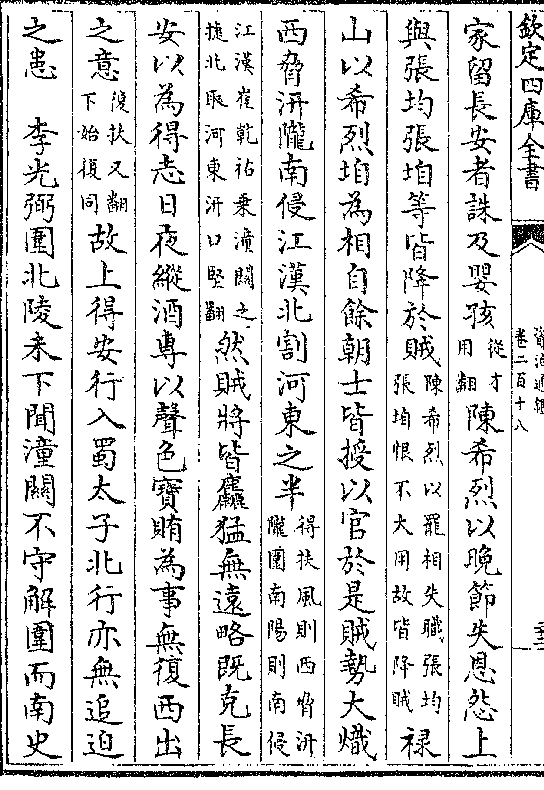 欽定四庫全書
資治通鑑
卷二百十八
家留長安者誅及嬰孩從才用翻陳希烈以晚節失恩怨上
與張均張垍等皆降於賊陳希烈以罷相失職張均張垍恨不大用故皆降賊禄
山以希烈垍為相自餘朝士皆授以官於是賊勢大熾
西脅汧隴南侵江漢北割河東之半得扶風則西脅汧隴圍南陽則南侵
江漢崔乾祐乗潼關之捷北取河東汧口堅翻然賊將皆麤猛無遠略既克長
安以為得志日夜縱酒專以聲色寳賄為事無復西出
之意復扶又翻下始復同故上得安行入蜀太子北行亦無追迫
之患　李光弼圍北陵未下聞潼關不守解圍而南史